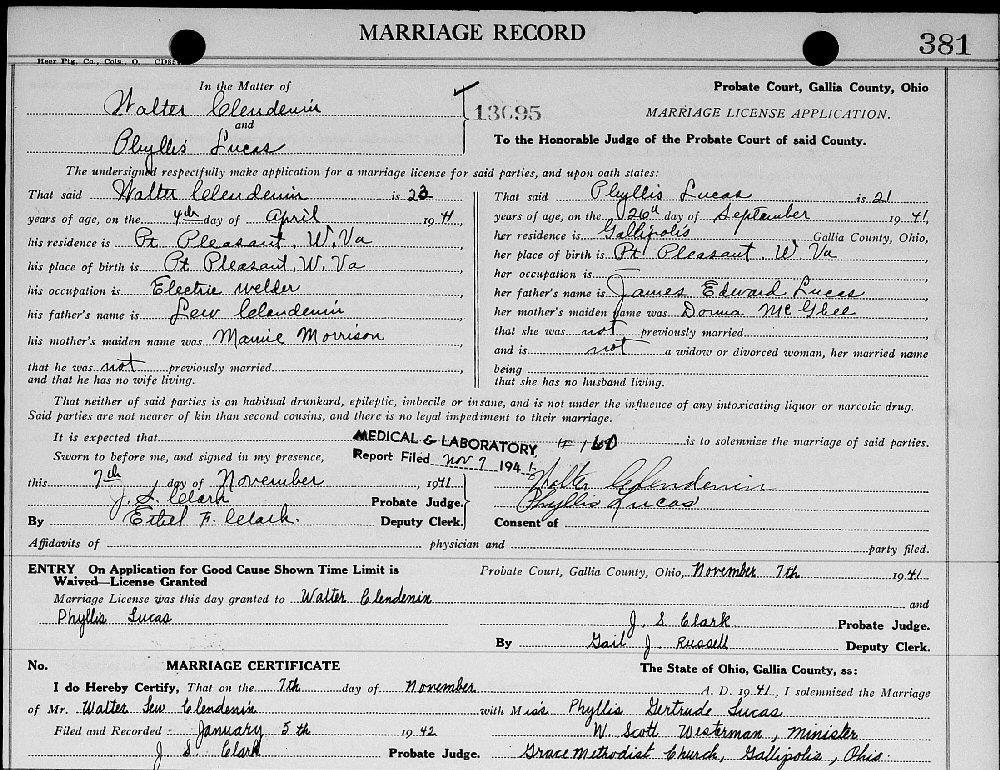 MARRIAGE RECORD
381
Heer Ptg. Co., Cols., O.
In the Matter of
Walter Clendenin
and
Phyllis Lucas
13695
Probate Court, Gallia County, Ohio
MARRIAGE LICENSE APPLICATION.
To the Honorable Judge of the Probate Court of said County.
The undersigned respectfully make application for a marriage license for said parties, and upon oath states:
That said Walter Clendenin is 23
years of age, on the 4th day of April 1941,
his residence is Pt. Pleasant, W. Va
his place of birth is Pt. Pleasant, W. Va
his occupation is Electric welder
his father's name is Lew Clendenin
his mother's maiden name was Mamie Morrison
that he was not previously married
and that he has no wife living.
That said Phyllis Lucas is 21
years of age, on the 26th day of September 1941,
her residence is Gallipolis Gallia County, Ohio,
her place of birth is Pt. Pleasant, W. Va
her occupation is
her father's name is James Edward Lucas
her mother's maiden name was Donna McGhee
that she was not previously married
and is not a widow or divorced woman, her married name
being
that she has no husband living.
That neither of said parties is an habitual drunkard, epileptic, imbecile or insane, and is not under the influence of any intoxicating liquor or narcotic drug.
Said parties are not nearer of kin than second cousins, and there is no legal impediment to their marriage.
It is expected that MEDICAL & LABORATORY # 160 is to solemnize the marriage of said parties.
Sworn to before me, and signed in my presence, Report Filed Nov 7 1941
this 7th day of November, 1941
Walter Clendenin
J. S. Clark Probate Judge.
Phyllis Lucas
By Ethel F. Clark. Deputy Clerk.
Consent of
Affidavits of physician and party filed.
ENTRY On Application for Good Cause Shown Time Limit is
Waived—License Granted
Probate Court, Gallia County, Ohio, November 7th 1941
Marriage License was this day granted to Walter Clendenin and
Phyllis Lucas
J. S. Clark Probate Judge.
By Gail J. Russell Deputy Clerk.
No. MARRIAGE CERTIFICATE
The State of Ohio, Gallia County, ss:
I do Hereby Certify, That on the 7th day of November A. D. 1941, I solemnized the Marriage
of Mr. Walter Lew Clendenin with Miss Phyllis Gertrude Lucas
Filed and Recorded January 5th 1942
W. Scott Westerman, Minister
J. S. Clark Probate Judge.
Grace Methodist Church, Gallipolis, Ohio.